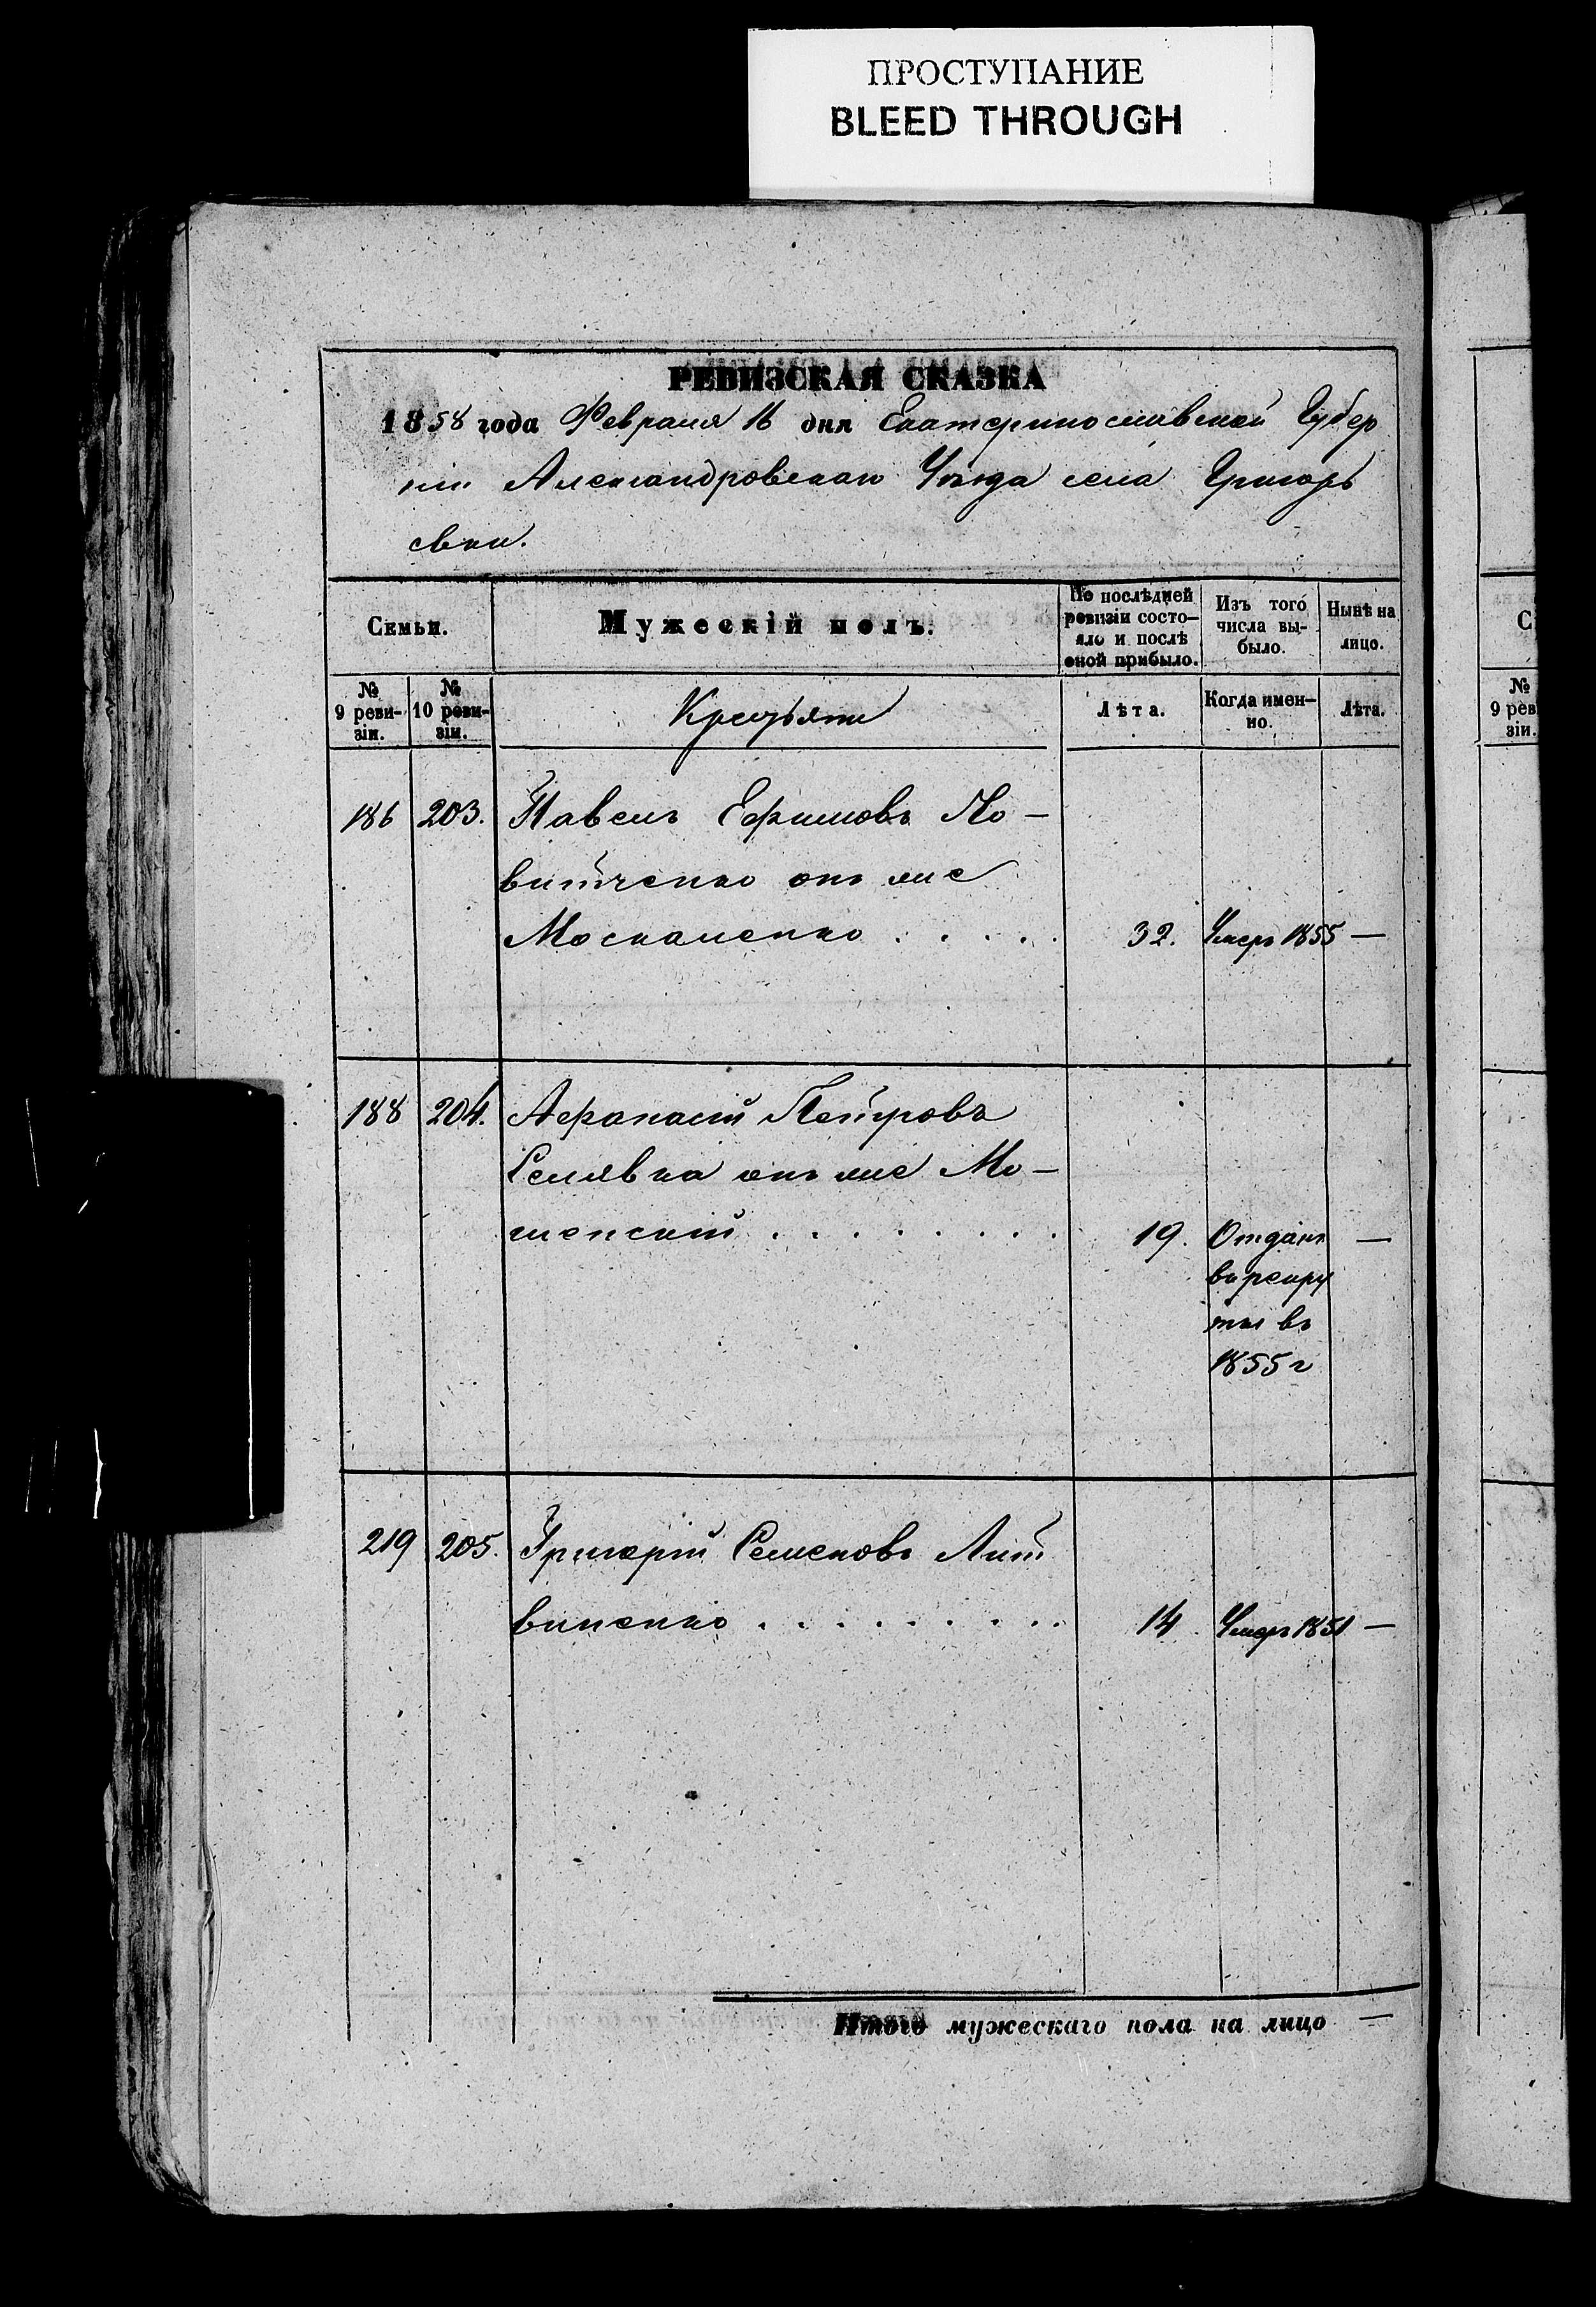 ПРОСТУПАНИЕ
BLEED THROUGH
РЕВИЗСКАЯ СКАЗКА
1858 года Февраля 16 дня Екатеринославской Губер
ніи Александровскаго Уѣзда села Григорь
евки.
Семьи.
Мужескій полъ.
По послѣдней
ревизіи состо-
яло и послѣ
оной прибыло.
Изъ того
числа вы-
было.
Нынѣ на
лицо.
№
9 реви-
зіи.
№
10 реви-
зіи.
Крестьяне
Лѣта.
Когда имен-
но.
Лѣта.
186 203. Павелъ Ефимовъ
онъ же
Москаленко . . . . . 32. Умеръ 1855 —
188 204. Афанасій Петровъ
онъ же Мо-
шенскій . . . . . . . . 19. Отданъ —
въ рекру
ты въ
1855 г
219 205. Григорій Семеновъ Лит
виненко . . . . . . . . . 14 Умеръ 1851 —
Итого мужескаго пола на лицо —
С
№
9 рев
зіи.